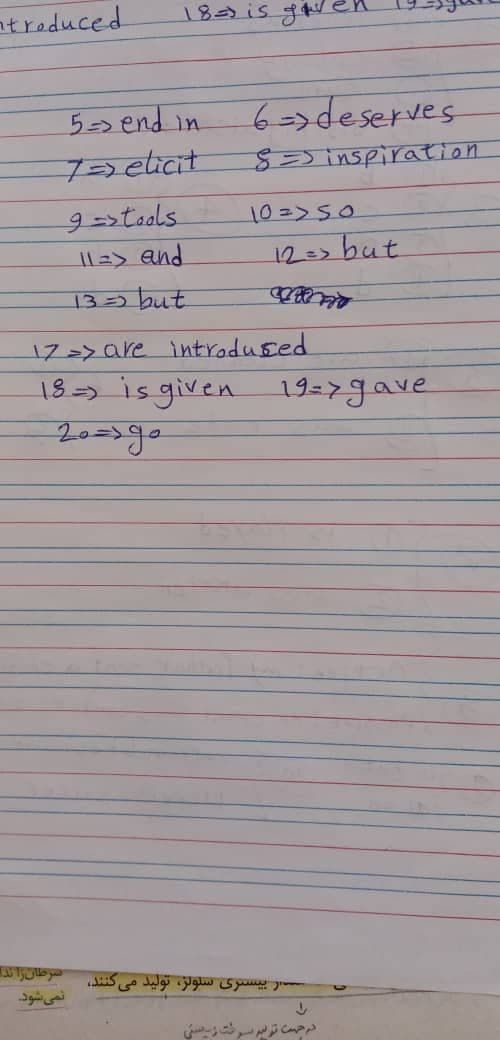 ntroduced 18=> is given 19=> gave
5=> end in 6=> deserves
7=> elicit 8=> inspiration
9=> tools 10=> so
11=> and 12=> but
13=> but
17=> are introduced
18=> is given 19=> gave
20=> go
سرطان‌زا بیشتری سلولز، تولید می‌کنند،
نمی‌شود.
در جهت تولید سوخت زیستی